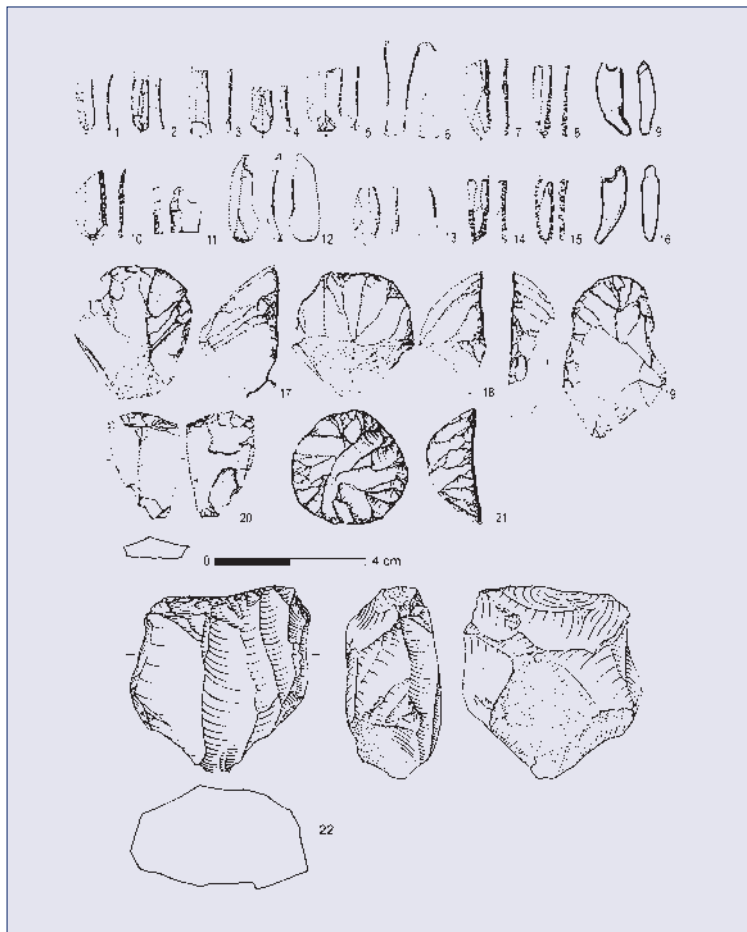 1 2 3 4 5 6 7 8 9
10 11 12 13 14 15 16
17 18 9
20 21
0 4 cm
22